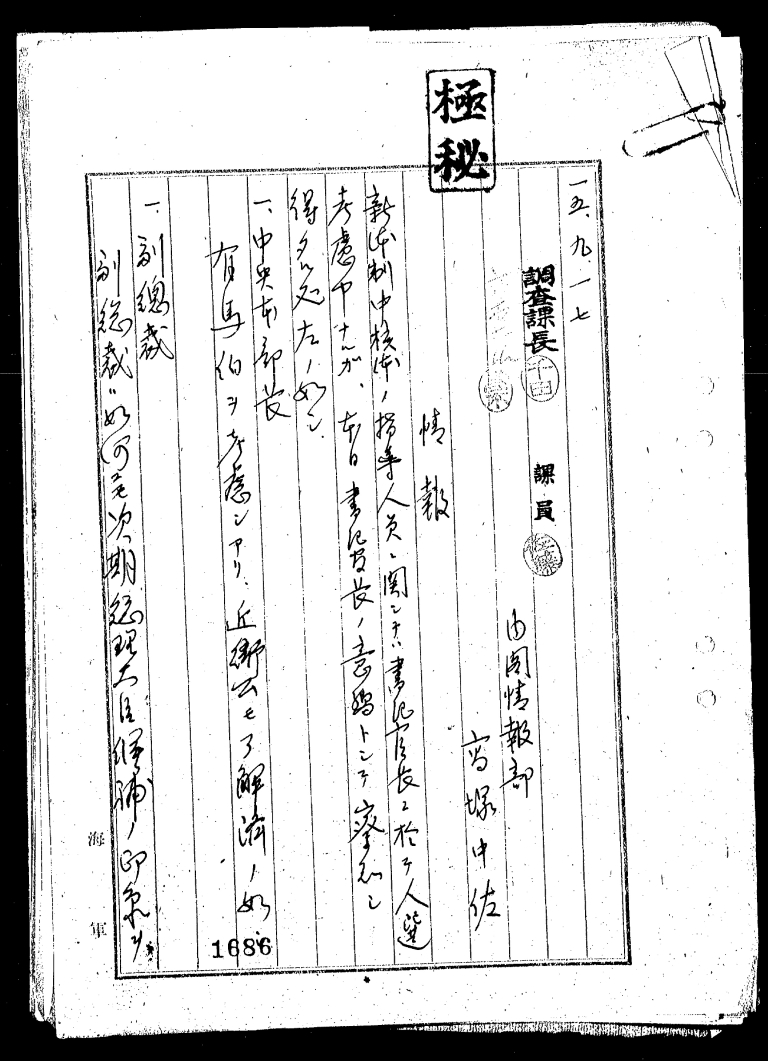 極秘
一五、九、一七
調査課長 千田 課員 佐藤
内閣情報部
高塚中佐
情報
新体制中核体ノ指導人員ニ関シテハ書記官長ニ於テ人選
考慮中ナルガ、本日書記官長ノ意嚮トシテ察知シ
得タル処左ノ如シ
一、中央本部長
有馬伯ヲ考慮シアリ、近衛公モ了解済ノ如シ
一、副総裁
副総裁ハ如何ニモ次期総理大臣候補ノ印象ヲ
海軍
1686